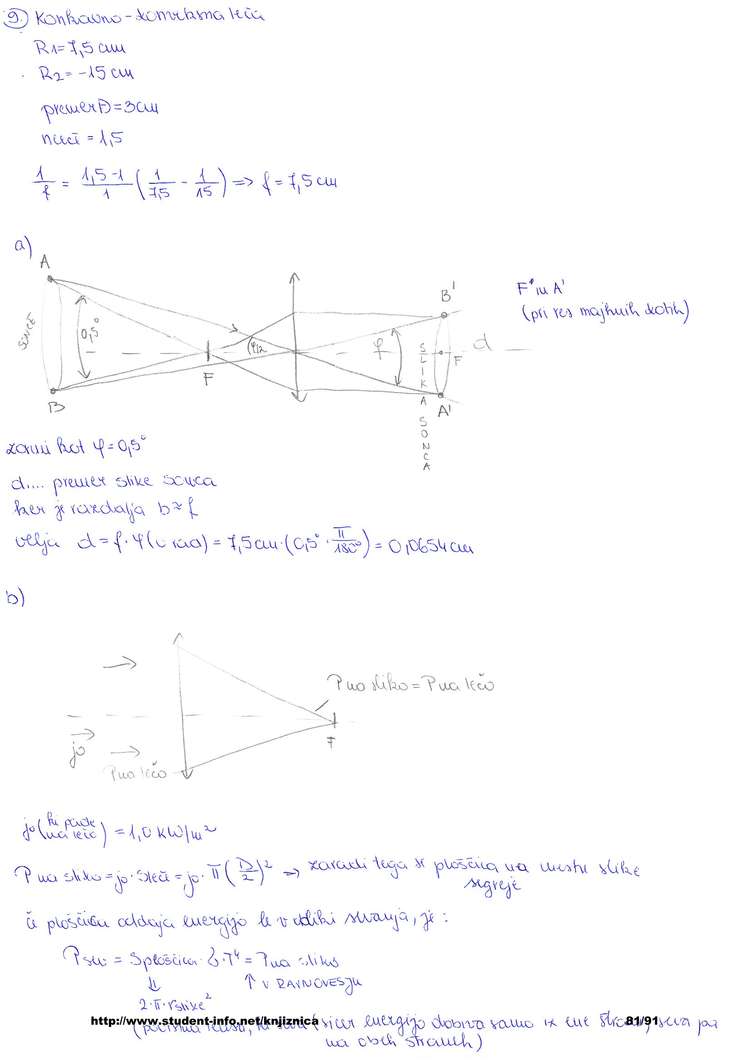 9. Konkavno-konveksna leča
R1=7,5 cm
R2=-15 cm
premer D=3cm
nleče = 1,5
1/f = (1,5-1)/1 (1/7,5 - 1/15) => f=7,5 cm
a)
A
SONCE
0,5°
B
F
φ/2
φ
B'
d
F
A'
SLIKA SONCA
F' in A'
(pri res majhnih kotih)
zorni kot φ=0,5°
d.... premer slike sonca
ker je razdalja b≈f
velja d=f·φ(v rad) = 7,5cm·(0,5°·π/180°) = 0,0654 cm
b)
P na sliko = P na lečo
F
jo
P na lečo
jo (ki pade na lečo) = 1,0 kW/m²
P na sliko = jo·Sleče = jo·π(D/2)² => zaradi tega se ploščica na mestu slike
segreje
če ploščica oddaja energijo le v obliki sevanja, je:
Psev = Sploščice·σ·T⁴ = P na sliko
↓ ↑ V RAVNOVESJU
2·π·rslike²
http://www.student-info.net/knjiznica 81/91
(sicer energijo dobiva samo iz ene strani, seva pa
na obeh straneh)